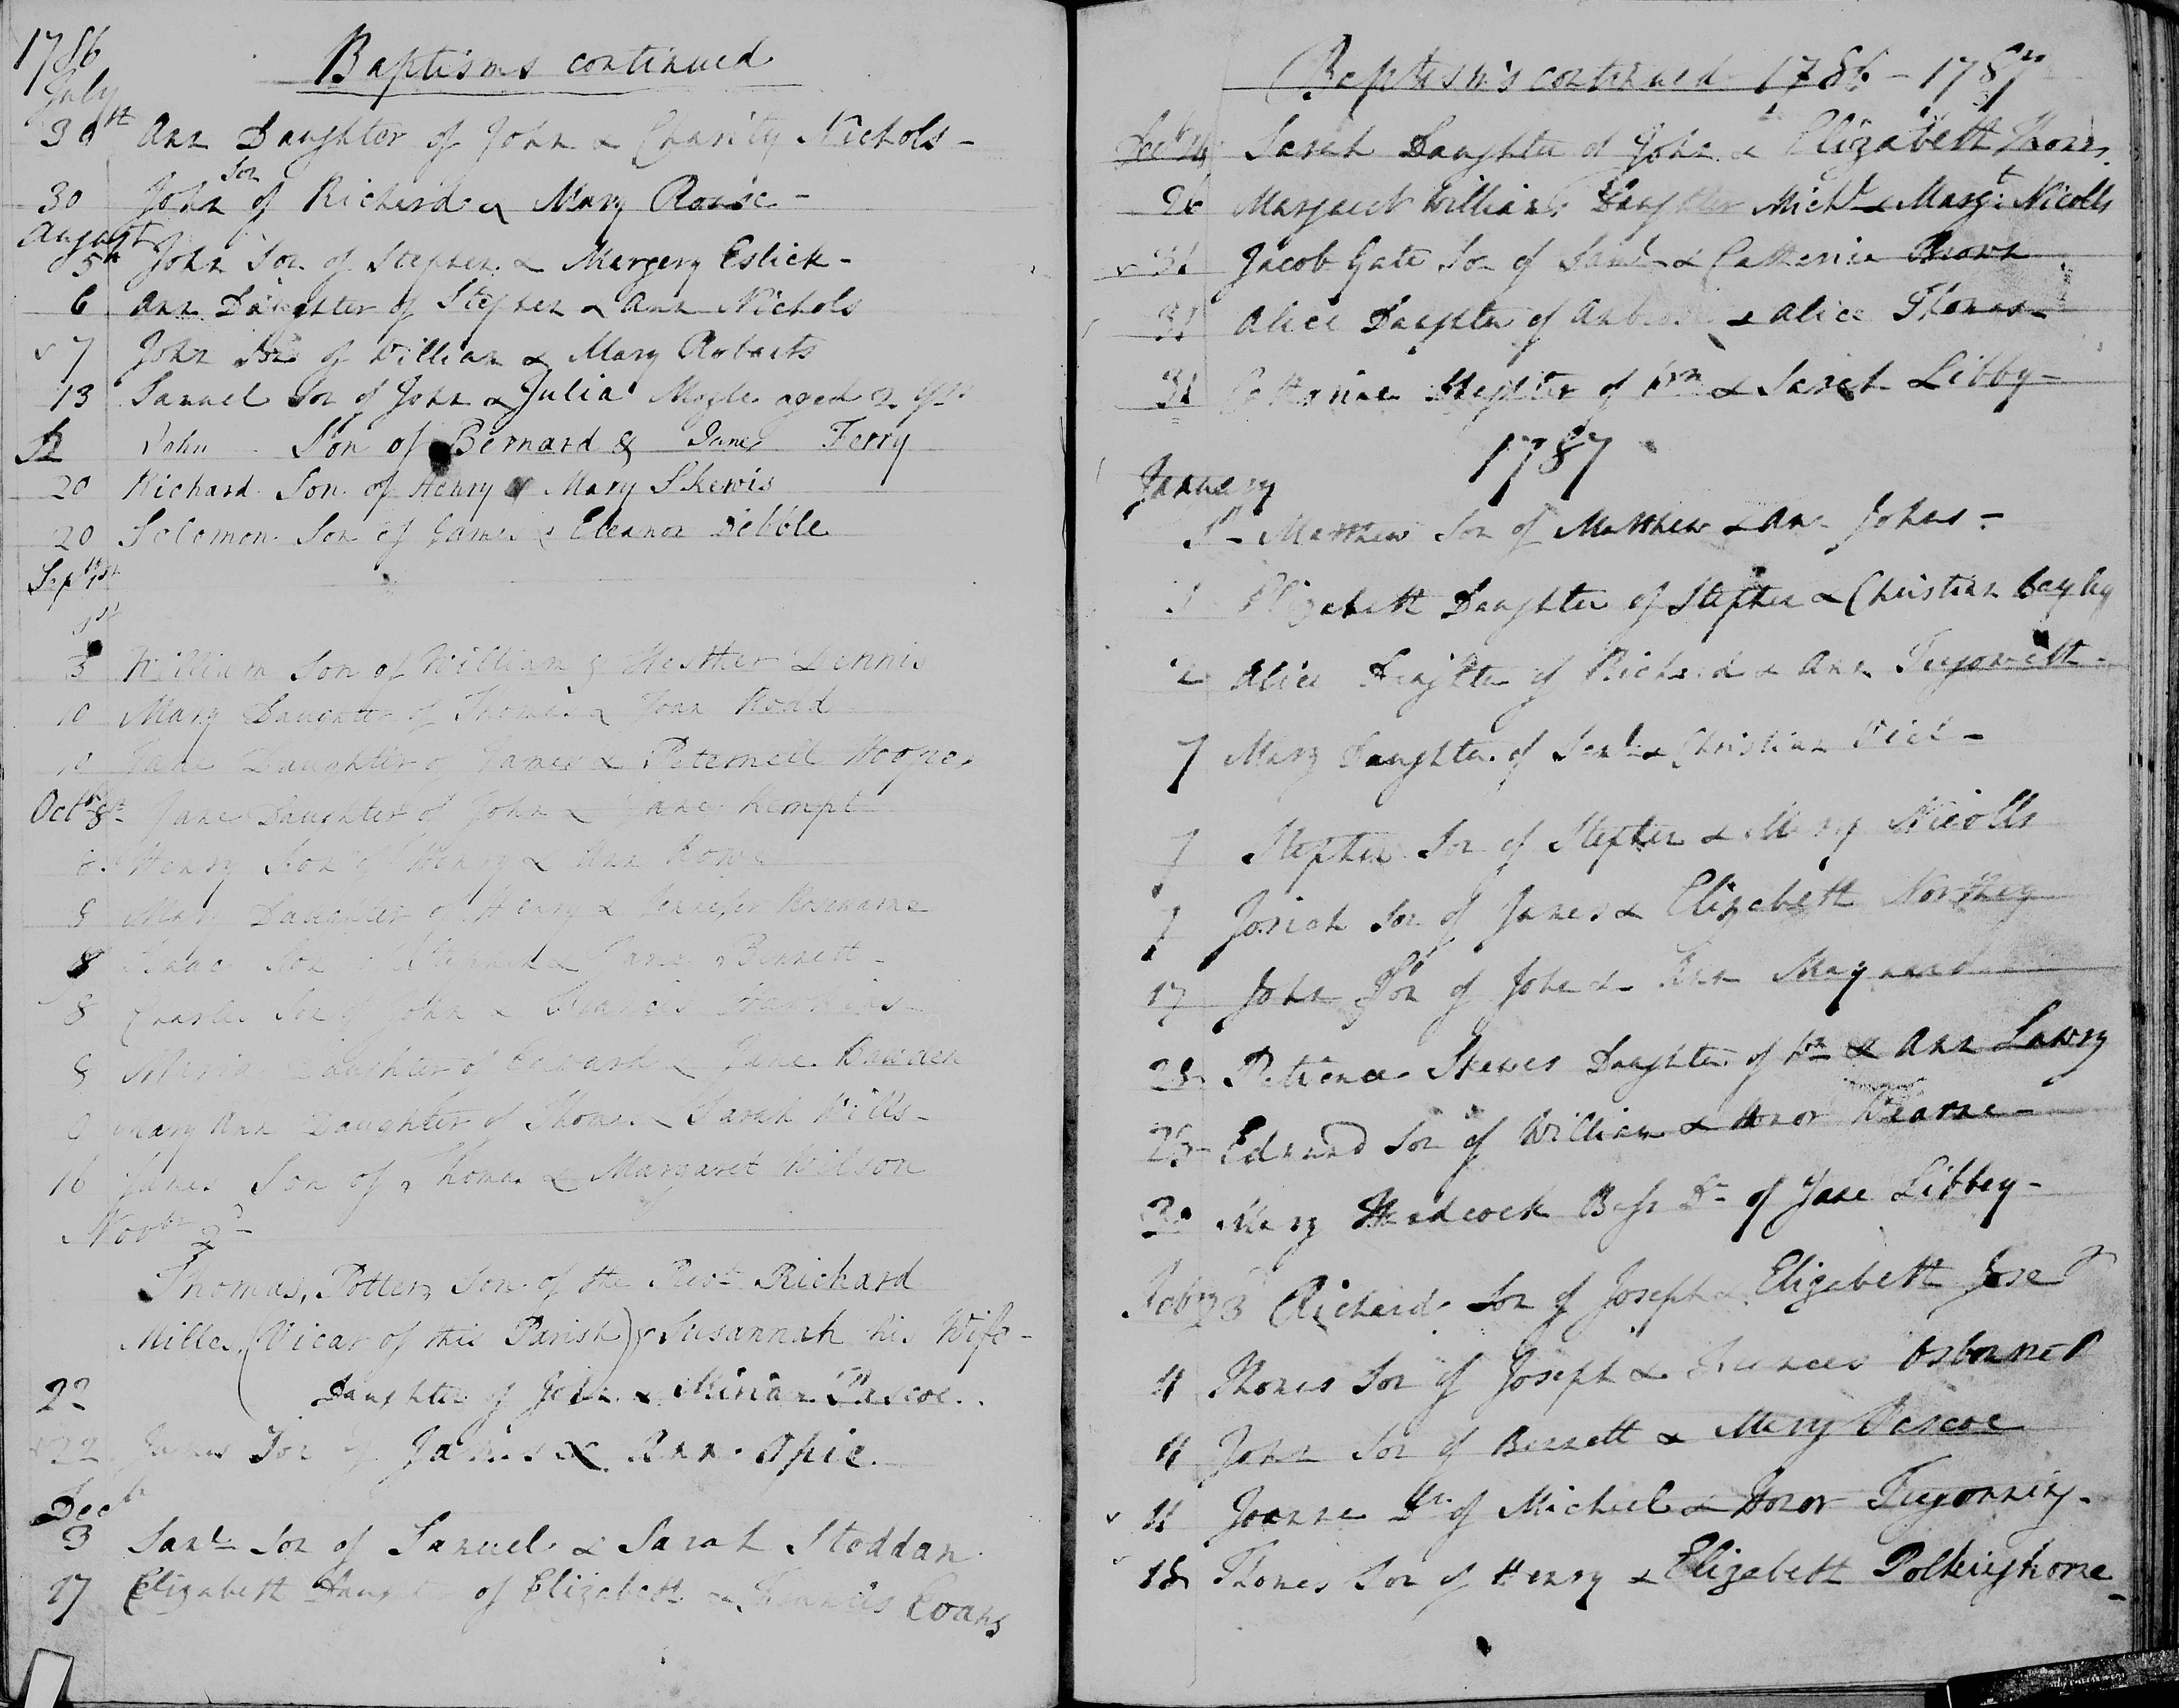 1786
Baptisms continued
July
30th Ann Daughter of John & Charity Nichols -
Son
30 John of Richard & Mary Rouse -
August
5th John Son of Stephen & Margery Eslick -
6 Ann Daughter of Stephen & Ann Nichols
7 John Son of William & Mary Robarts
13 Samuel Son of John & Julia Moyle aged 2 yrs
John Son of Bernard & Jane Ferry
20 Richard Son of Henry & Mary Skewis
20 Solomon Son of James & Eleanor Dibble
Septbr
1st
3 William Son of William & Hesther Dennis
10 Mary Daughter of Thomas & Joan Road
10 Jane Daughter of James & Peternell Hooper
Octbr 8th Jane Daughter of John & Jane Kempe
8 Henry Son of Henry & Ann Rowe
8 Mary Daughter of Henry & Jennefer Rosewarne
8 Isaac Son of & Jane Bennett -
8 Charles Son of John & Francis
8 Maria Daughter of Edward & Jane Bawden
8 Mary Ann Daughter of Thomas & Sarah Wills -
16 James Son of Thomas & Margaret Wilson
Novbr 2d
Thomas, Potter, Son of the Revd Richard
Milles, (Vicar of this Parish) & Susannah his Wife -
22 Daughter of John & Miriam Pascoe.
22 James Son of James & Ann Opie.
Decbr
3 Saml Son of Samuel & Sarah Stoddan
17 Elizabeth Daughter of Elizabeth & Francis Evans
Baptism's continued 1786 - 1787
Decbr 24 Sarah Daughter of John & Elizabeth Thoms
26 Margaret William Daughter Michl & Margt Nicolls
31 Jacob Gate Son of Saml & Catherine Brown
31 Alice Daughter of & Alice Thomas -
31 Catharine Daughter of Wm & Sarah Libby -
1787
January
1st Matthew Son of Matthew & Ann Johns -
1 Elizabeth Daughter of Stephen & Christian Bayley
2 Alice Daughter of Richard & Ann -
7 Mary Daughter of Saml & Christian -
7 Stephen Son of Stephen & Mary Nicolls
7 Josiah Son of James & Elizabeth Northey
17 John Son of John & Ann Maynard
28 Patience Skewes Daughter of Wm & Ann Lawry
28 Edward Son of William & Honor Wearne -
30 Mary Headcock Bass Dr of Jane Libbey -
Febry 3 Richard Son of Joseph & Elizabeth Jose
4 Thomas Son of Joseph & Frances Osborne
4 John Son of Bennett & Mary Pascoe
11 Joanna Dr of Michael & Honor Tregonning -
18 Thomas Son of Henry & Elizabeth Polkinghorne -